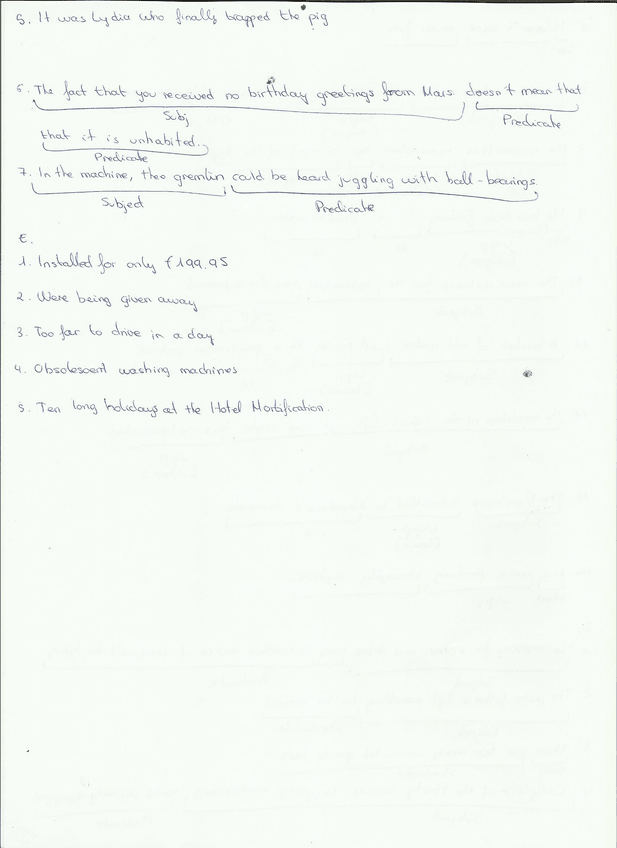 5. It was Lydia who finally trapped the pig
6. The fact that you received no birthday greetings from Mars doesn't mean that
Subj
Predicate
that it is unhabited.
Predicate
7. In the machine, the gremlin could be heard juggling with ball-bearings.
Subject
Predicate
E.
1. Installed for only £199.95
2. Were being given away
3. Too far to drive in a day
4. Obsolescent washing machines
5. Ten long holidays at the Hotel Mortification.